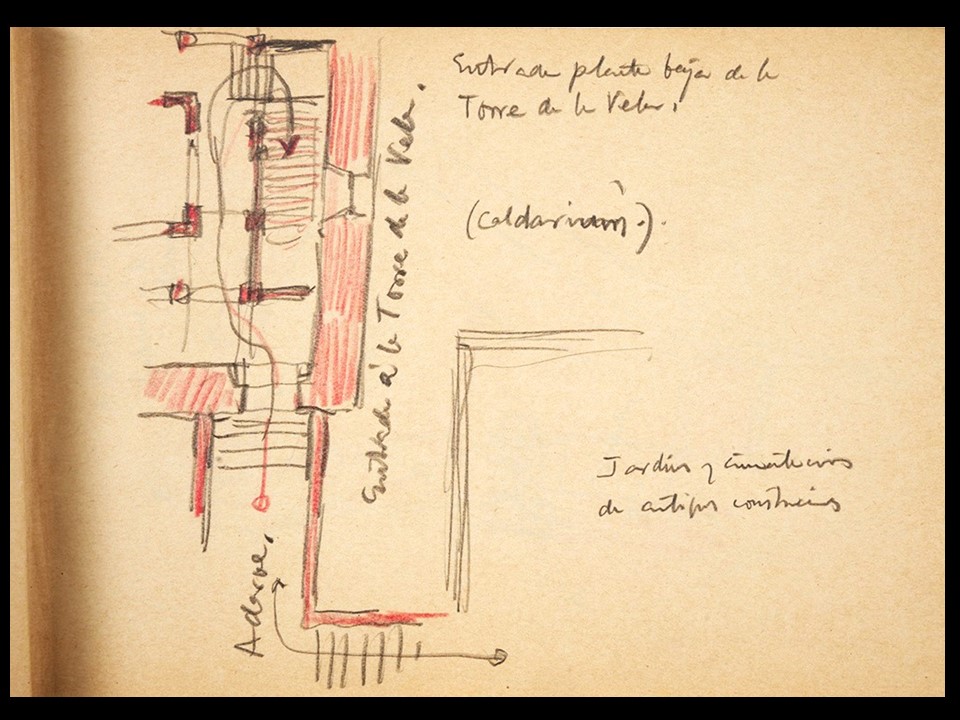 Entrada planta baja de la
Torre de la Vela.
(Caldarium).
Entrada a la Torre de la Vela.
Jardín y cimentaciones
de antiguas construcciones
Adarve.